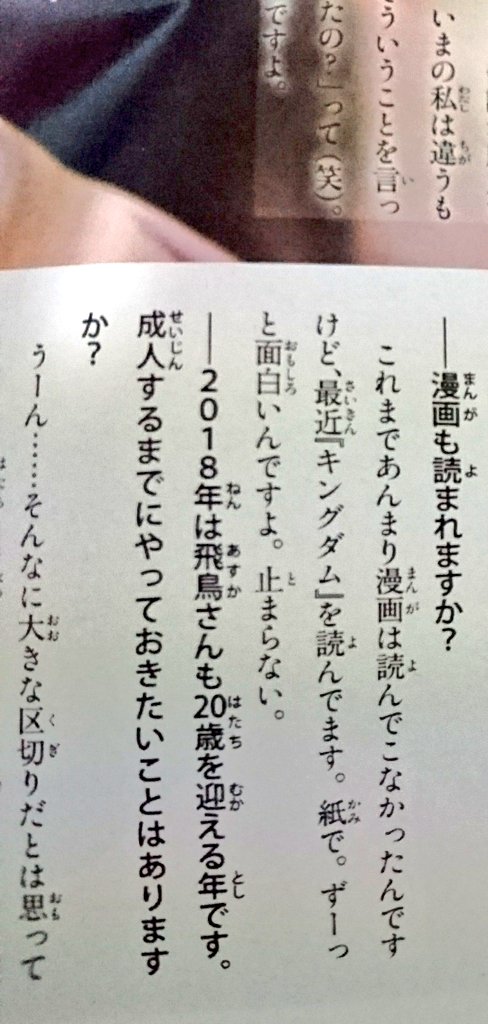 いまの私は違うも
ういうことを言っ
たの？」って（笑）。
ですよ。
──漫画も読まれますか？
これまであんまり漫画は読んでこなかったんです
けど、最近『キングダム』を読んでます。紙で。ずーっ
と面白いんですよ。止まらない。
──2018年は飛鳥さんも20歳を迎える年です。
成人するまでにやっておきたいことはあります
か？
うーん……そんなに大きな区切りだとは思って